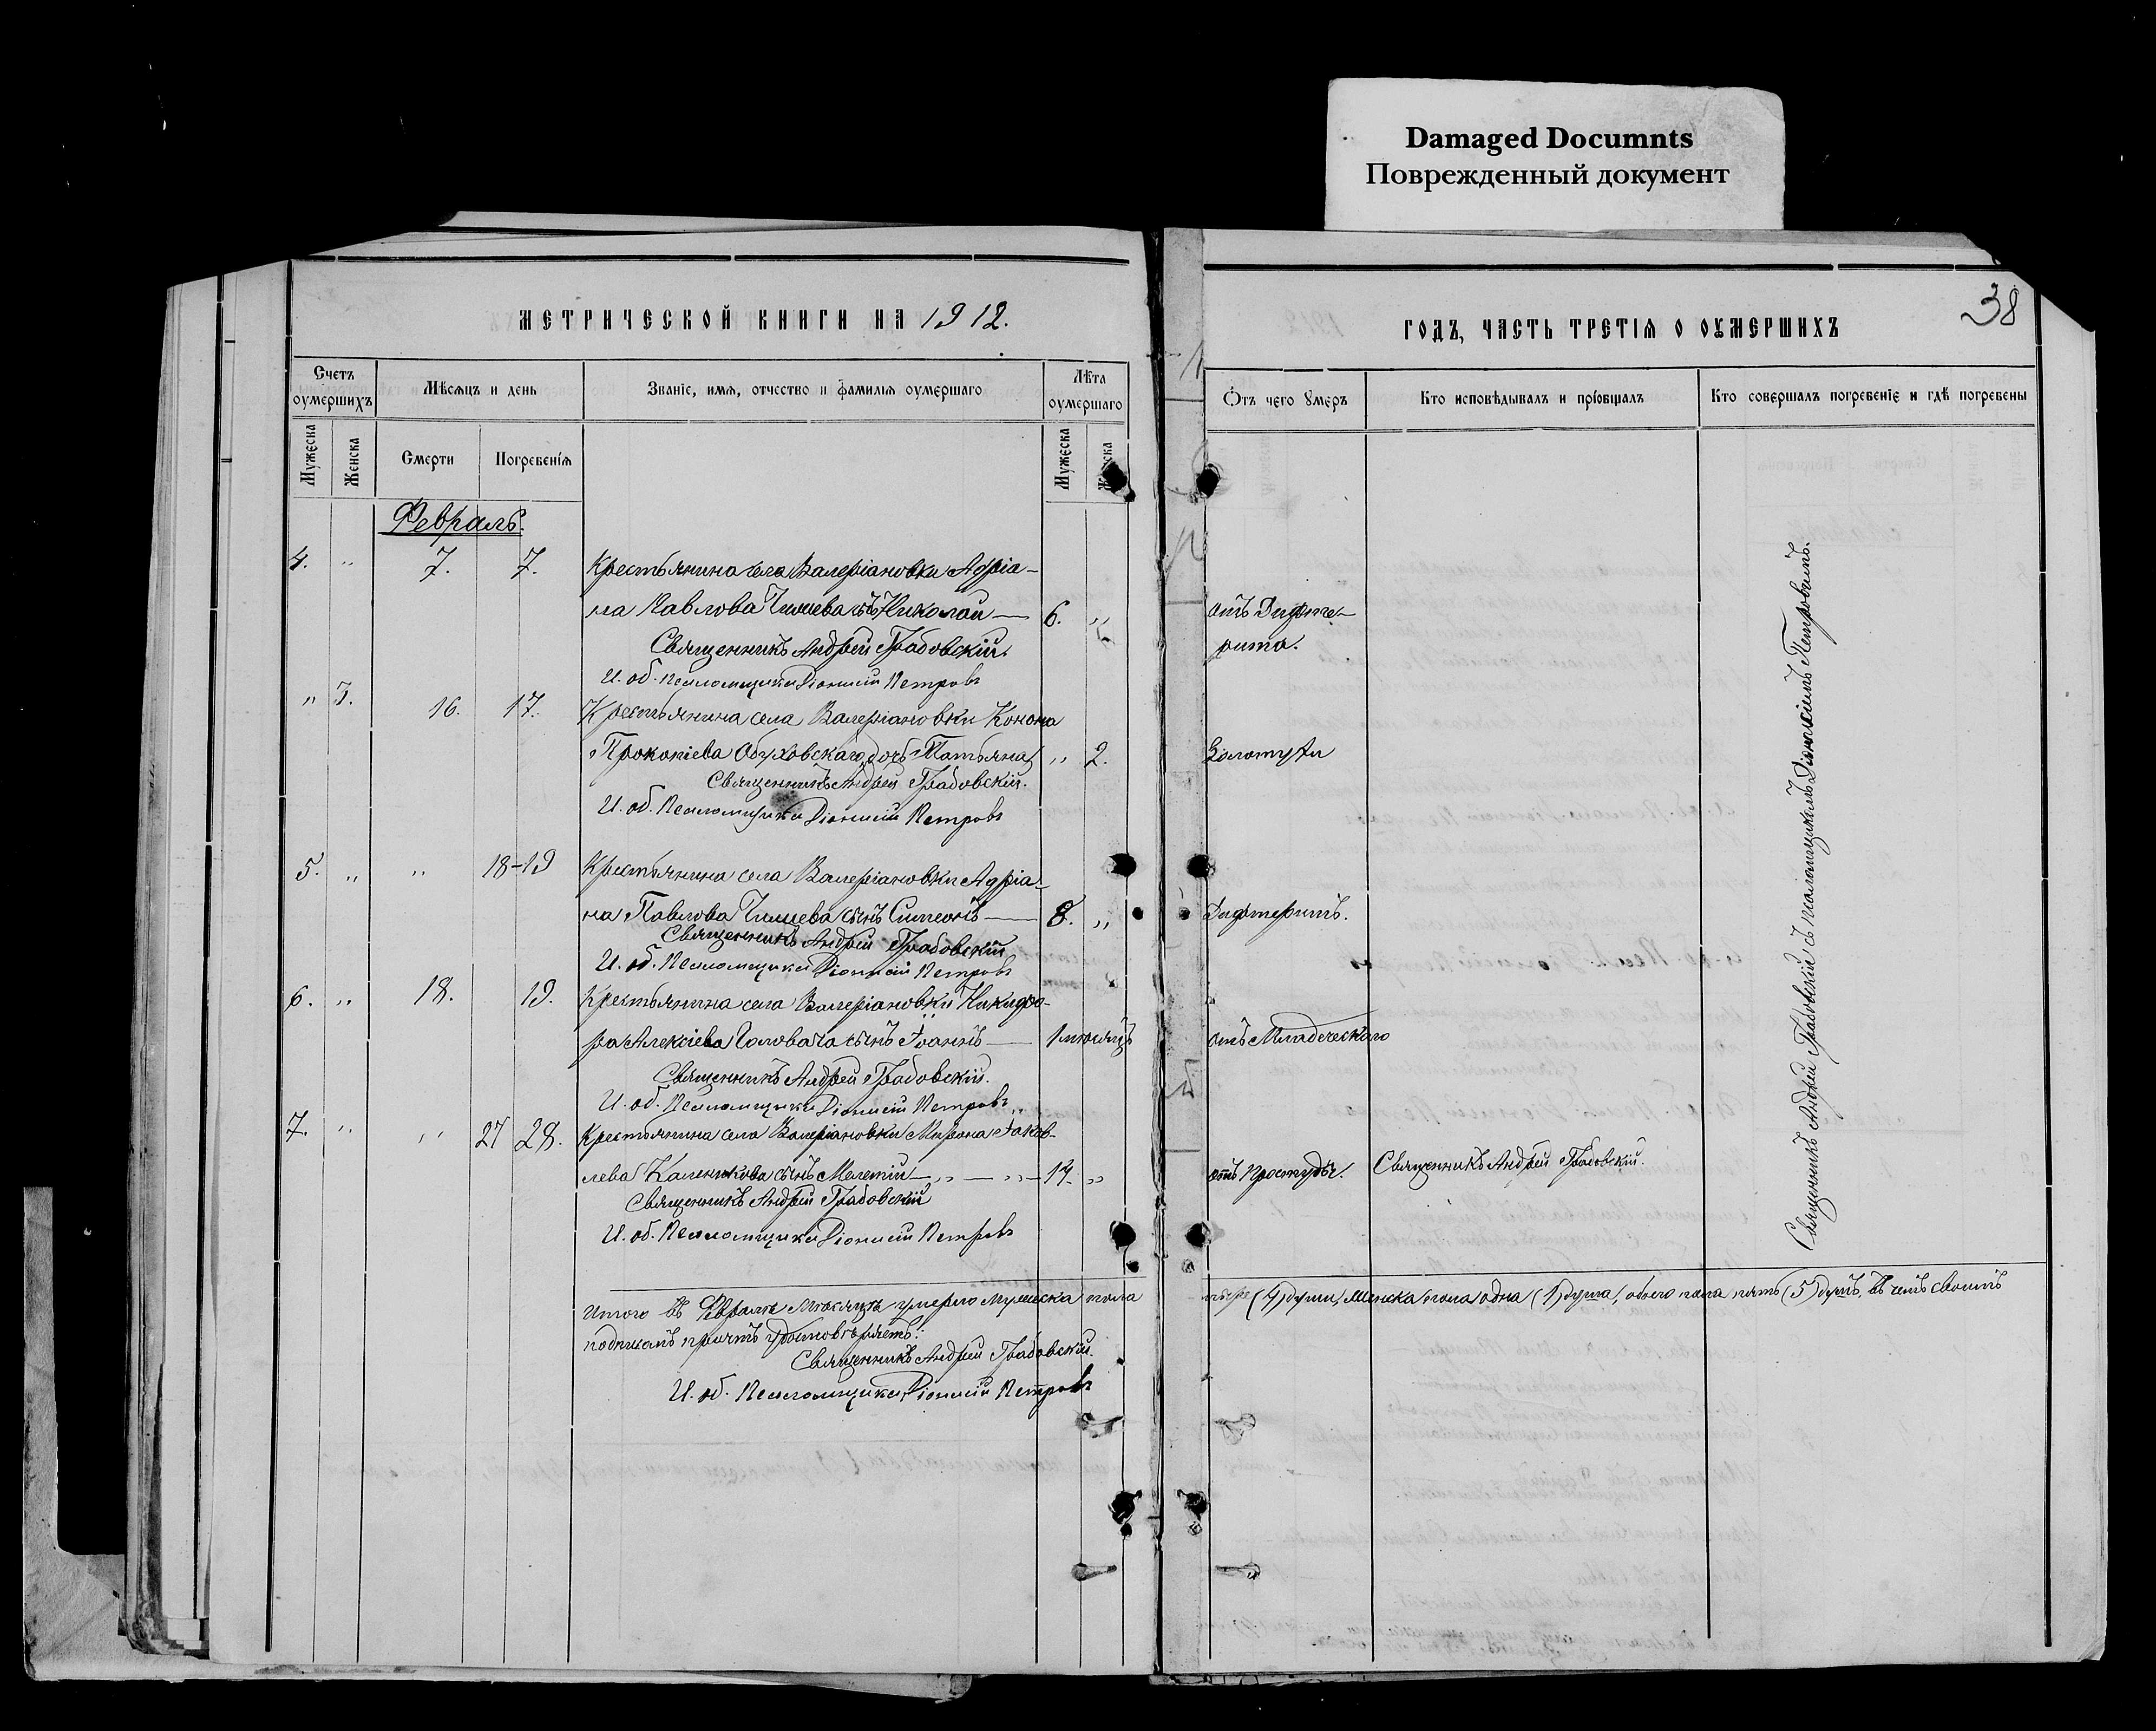 Damaged Documnts
Поврежденный документ
МЕТРИЧЕСКОЙ КНИГИ НА 1912.
Счетъ оумершихъ
Мѣсяцъ и день
Званіе, имя, отчество и фамилія оумершаго
Лѣта оумершаго
Мужеска
Женска
Смерти
Погребенія
Мужеска
Февраль.
4. „ 7. 7. Крестьянина села Валеріановки Адріа-
на Павлова сынъ Николай — 6. „
Священникъ Андрей Грабовскій.
И. об. Псаломщика Діонисій Петровъ
„ 16. 17. Крестьянина села Валеріановки Конона
Прокопіева Обуховскаго дочь Татьяна „ 2.
Священникъ Андрей Грабовскій.
И. об. Псаломщика Діонисій Петровъ
5. „ „ 18-19 Крестьянина села Валеріановки Адріа-
на Павлова сынъ Симеонъ — 8. „
Священникъ Андрей Грабовскій
И. об. Псаломщика Діонисій Петровъ
6. „ 18. 19. Крестьянина села Валеріановки Никифо-
ра Алексіева Головача сынъ Іоаннъ — 1 мѣсяцъ
Священникъ Андрей Грабовскій.
И. об. Псаломщика Діонисій Петровъ
7. „ „ 27 28. Крестьянина села Валеріановки Мирона Іаков-
лева Каленикова сынъ Мелетій — „ — „ — 14. „
Священникъ Андрей Грабовскій
И. об. Псаломщика Діонисій Петровъ
Итого въ Февралѣ мѣсяцѣ умерло мужеска пола
подписомъ причтъ удостовѣряетъ:
Священникъ Андрей Грабовскій.
И. об. Псаломщика Діонисій Петровъ
38
ГОДЪ, ЧАСТЬ ТРЕТІЯ О ОУМЕРШИХЪ
Отъ чего умеръ
Кто исповѣдывалъ и пріобщалъ
Кто совершалъ погребеніе и гдѣ погребены
отъ Дифте-
рита.
Золотухи
Дифтеритъ.
отъ Младеческаго
отъ простуды. Священникъ Андрей Грабовскій.
Священникъ Андрей Грабовскій съ псаломщикомъ Діонисіемъ Петровымъ.
четыре (4) души, женска пола одна (1) душа, обоего пола пять (5) душъ, въ чемъ своимъ